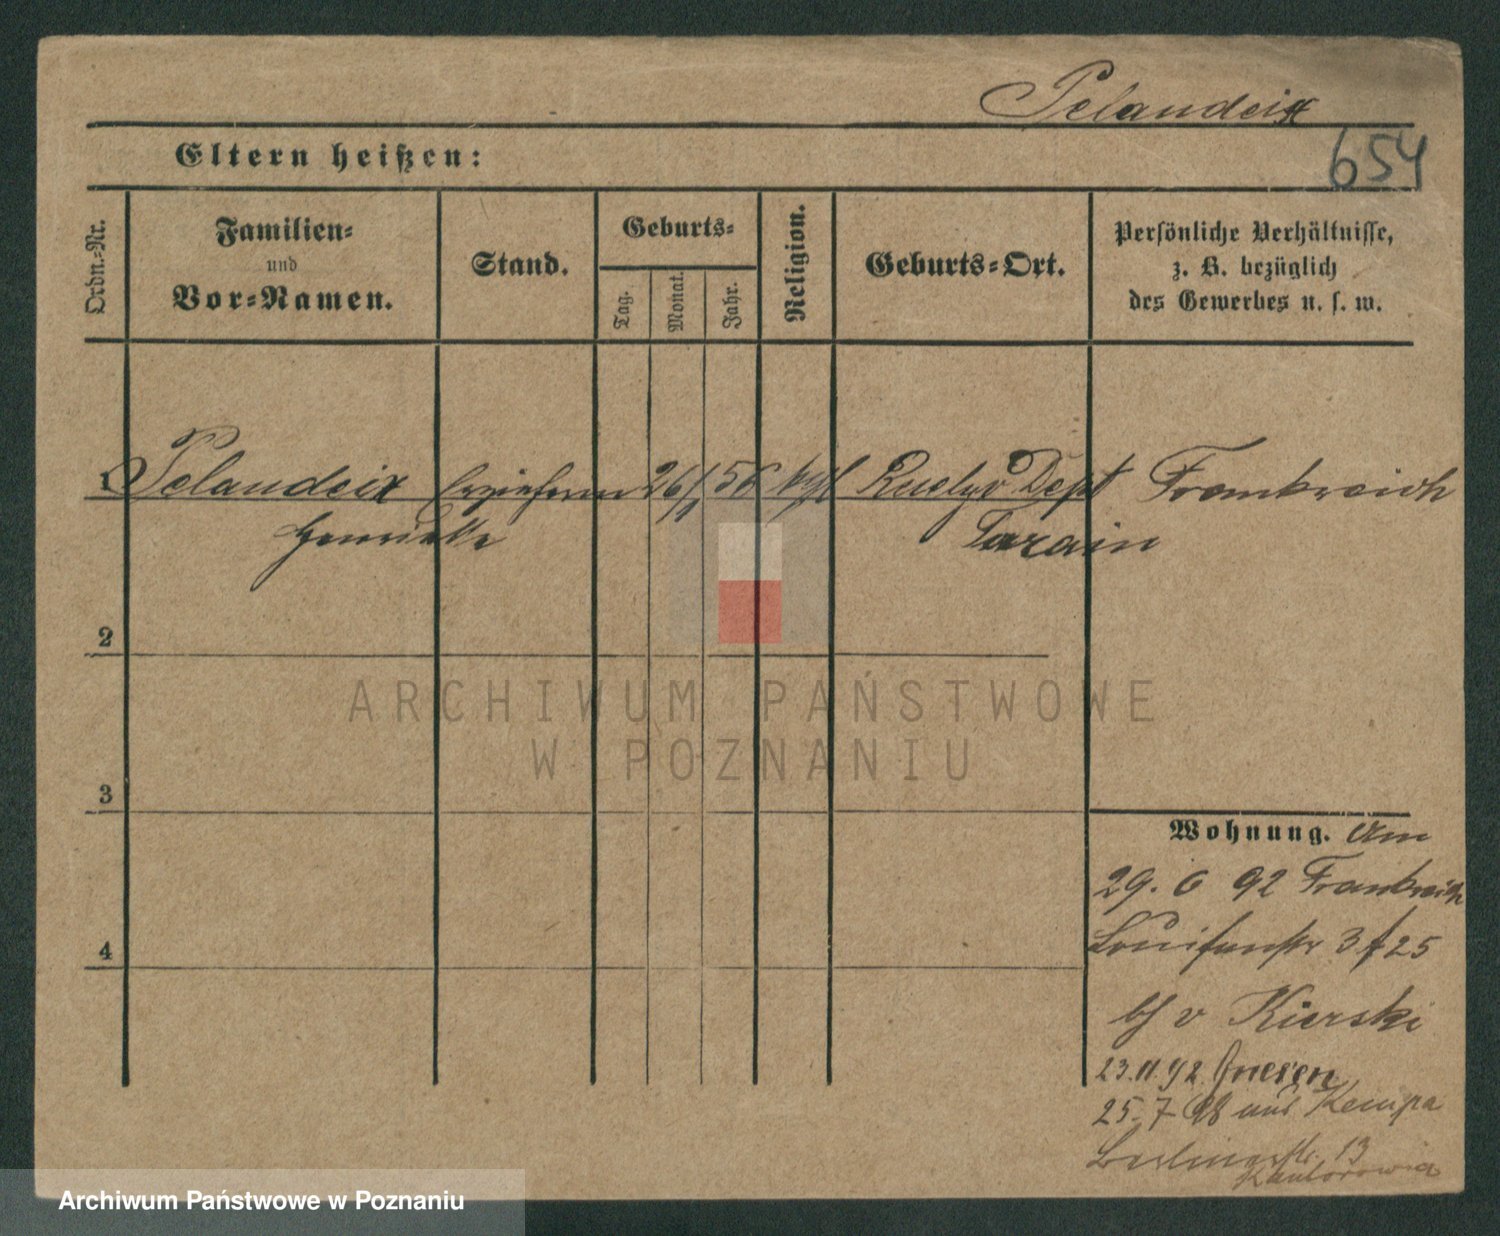 Pelandeix
654
Eltern heißen:
Ordn.-Nr.
Familien-
und
Vor-Namen.
Stand.
Geburts-
Tag.
Monat.
Jahr.
Religion.
Geburts-Ort.
Persönliche Verhältnisse,
z. B. bezüglich
des Gewerbes u. s. w.
1 Pelandeix Erzieherin 26/1 56 kath Dept Frankreich
Henriette
2
3
4
Wohnung. Am
29. 6 92 Frankreich
Louisenstr 3 25
bei v Kierski
23.11.92. Gnesen
25.7.98 aus Kempa
Berlinerstr. 13
Kantorowicz
ARCHIWUM PAŃSTWOWE
W POZNANIU
Archiwum Państwowe w Poznaniu